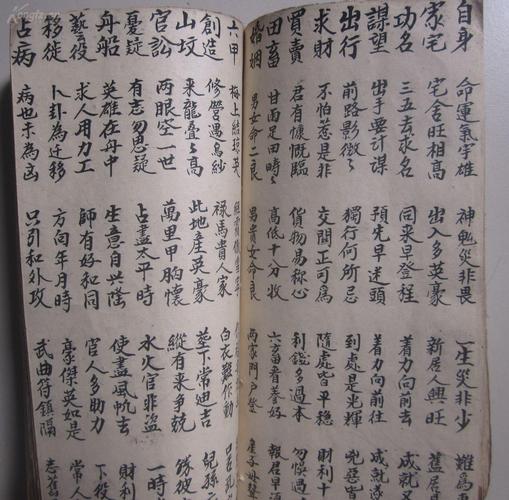 自身 命運氣宇雄 神鬼災非畏 一生災非少 難為
家宅 宅舍旺相高 出入多英豪 新居人興旺 蓋居
功名 三五去求名 同来早登程 着力向前去 成就又
謀望 出手要計謀 預先早迷頭 着力向前往 成就
出行 前路影微々 獨行何所忌 到處是光輝 凶惡皆
求財 不怕惹是非 交關正可為 隨處皆平穩 財利十
買賣 君有慷慨臨 貨物易称心 利錢多過本 勿悞遇
田畜 甘雨足田時 高低十分收 六畜看養好 報屋早
婚姻 男女命二良 男貴女命良 兩家門戶
六甲 梅上結
創造 修營遇烏紗 禄馬貴人家 白衣難作動
山坟 来龍疊々高 此地産英豪 葬下常迪吉 兒孫
官訟 兩眼空一世 萬里甲胸懷 縱有来爭競
憂疑 有志勿思疑 占盡太平時 水火官非盗 一時
舟船 英雄在舟中 生意自興隆 使盡風帆去 財利
藝役 求人用力工 師有好和同 官人多助力 下役
移徙 卜卦為迁移 方向年月時 豪傑英如是 常人
占病 病也未為凶 只引和外攻 武曲符鎮隔